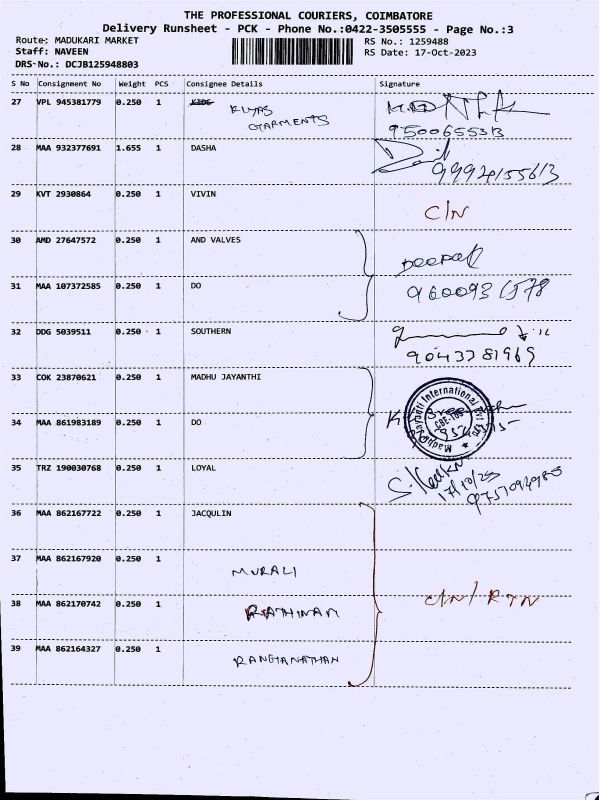 THE PROFESSIONAL COURIERS, COIMBATORE
Delivery Runsheet - PCK - Phone No.:0422-3505555 - Page No.:3
Route: MADUKARI MARKET RS No.: 1259488
Staff: NAVEEN RS Date: 17-Oct-2023
DRS-No.: DCJB125948803
S No Consignment No Weight PCS Consignee Details Signature
27 VPL 945381779 0.250 1 KIDS RUYAS
GARMENTS
9500655313
28 MAA 932377691 1.655 1 DASHA
9994155613
29 KVT 2930864 0.250 1 VIVIN
C/N
30 AMD 27647572 0.250 1 AND VALVES
DEEPAK
31 MAA 107372585 0.250 1 DO
9600931578
32 DDG 5039511 0.250 1 SOUTHERN
9043381969
33 COK 23870621 0.250 1 MADHU JAYANTHI
34 MAA 861983189 0.250 1 DO
35 TRZ 190030768 0.250 1 LOYAL
17/10/23
36 MAA 862167722 0.250 1 JACQULIN
37 MAA 862167920 0.250 1
MURALI
38 MAA 862170742 0.250 1 RATHINAM C/N/RTN
39 MAA 862164327 0.250 1
RANGANATHAN